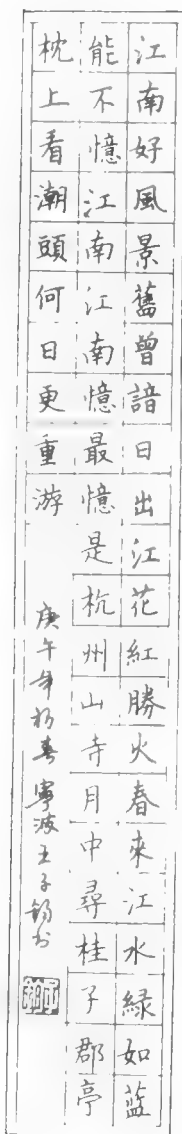 江南好風景舊曾諳日出江花紅勝火春來江水綠如藍
能不憶江南江南憶最憶是杭州山寺月中尋桂子郡亭
枕上看潮頭何日更重游
庚午年初春寧波王子錫书